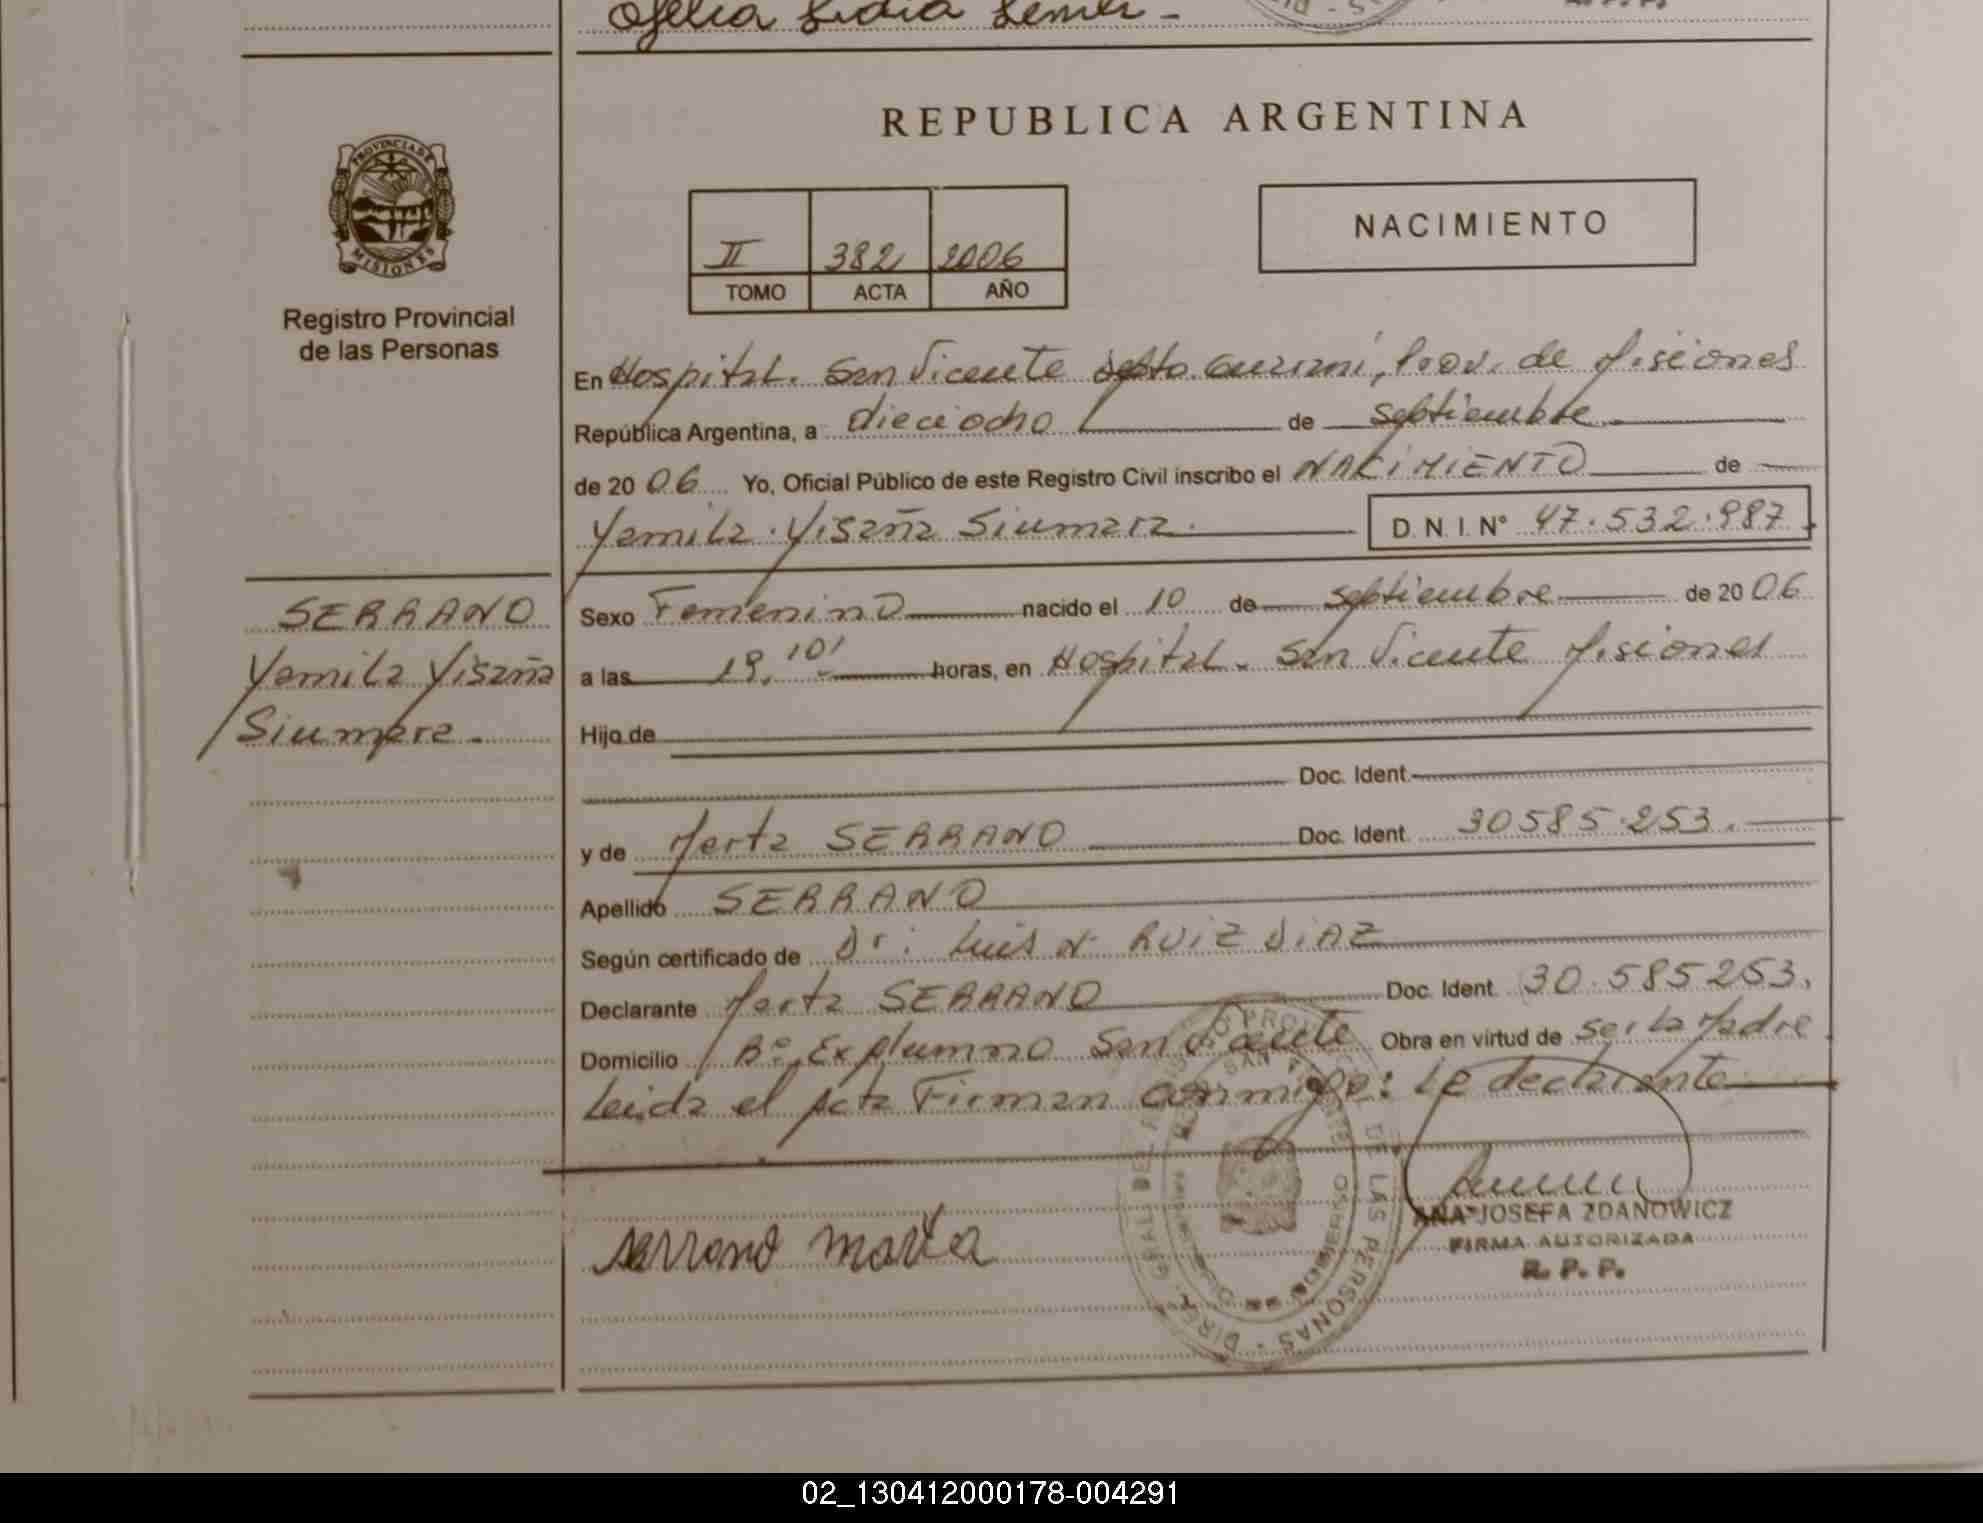 Ofelia Lidia
REPUBLICA ARGENTINA
PROVINCIA DE
MISIONES
Registro Provincial
de las Personas
II 382 2006
TOMO ACTA AÑO
NACIMIENTO
En Hospital. San Vicente Dpto. Guaraní, Prov. de Misiones
República Argentina, a dieciocho de septiembre
de 2006 Yo, Oficial Público de este Registro Civil inscribo el NACIMIENTO de
Yamila Yisaña Siumara. D.N.I. N° 47.532.987
SERRANO
Yamila Yisaña
Siumara.
Sexo Femenino nacido el 10 de septiembre de 2006
a las 19,10' horas, en Hospital. San Vicente Misiones
Hijo de
Doc. Ident.
y de Marta SERRANO Doc. Ident. 30585.253.
Apellido SERRANO
Según certificado de Dr: Luis N. RUIZ DIAZ
Declarante Marta SERRANO Doc. Ident. 30.585253.
Domicilio Bº. Ex Alumno San Vicente Obra en virtud de ser la Madre
Leida el Acta Firman conmigo: La declarante
serrano marta
ANA JOSEFA ZDANOWICZ
FIRMA AUTORIZADA
R. P. P.
02_130412000178-004291